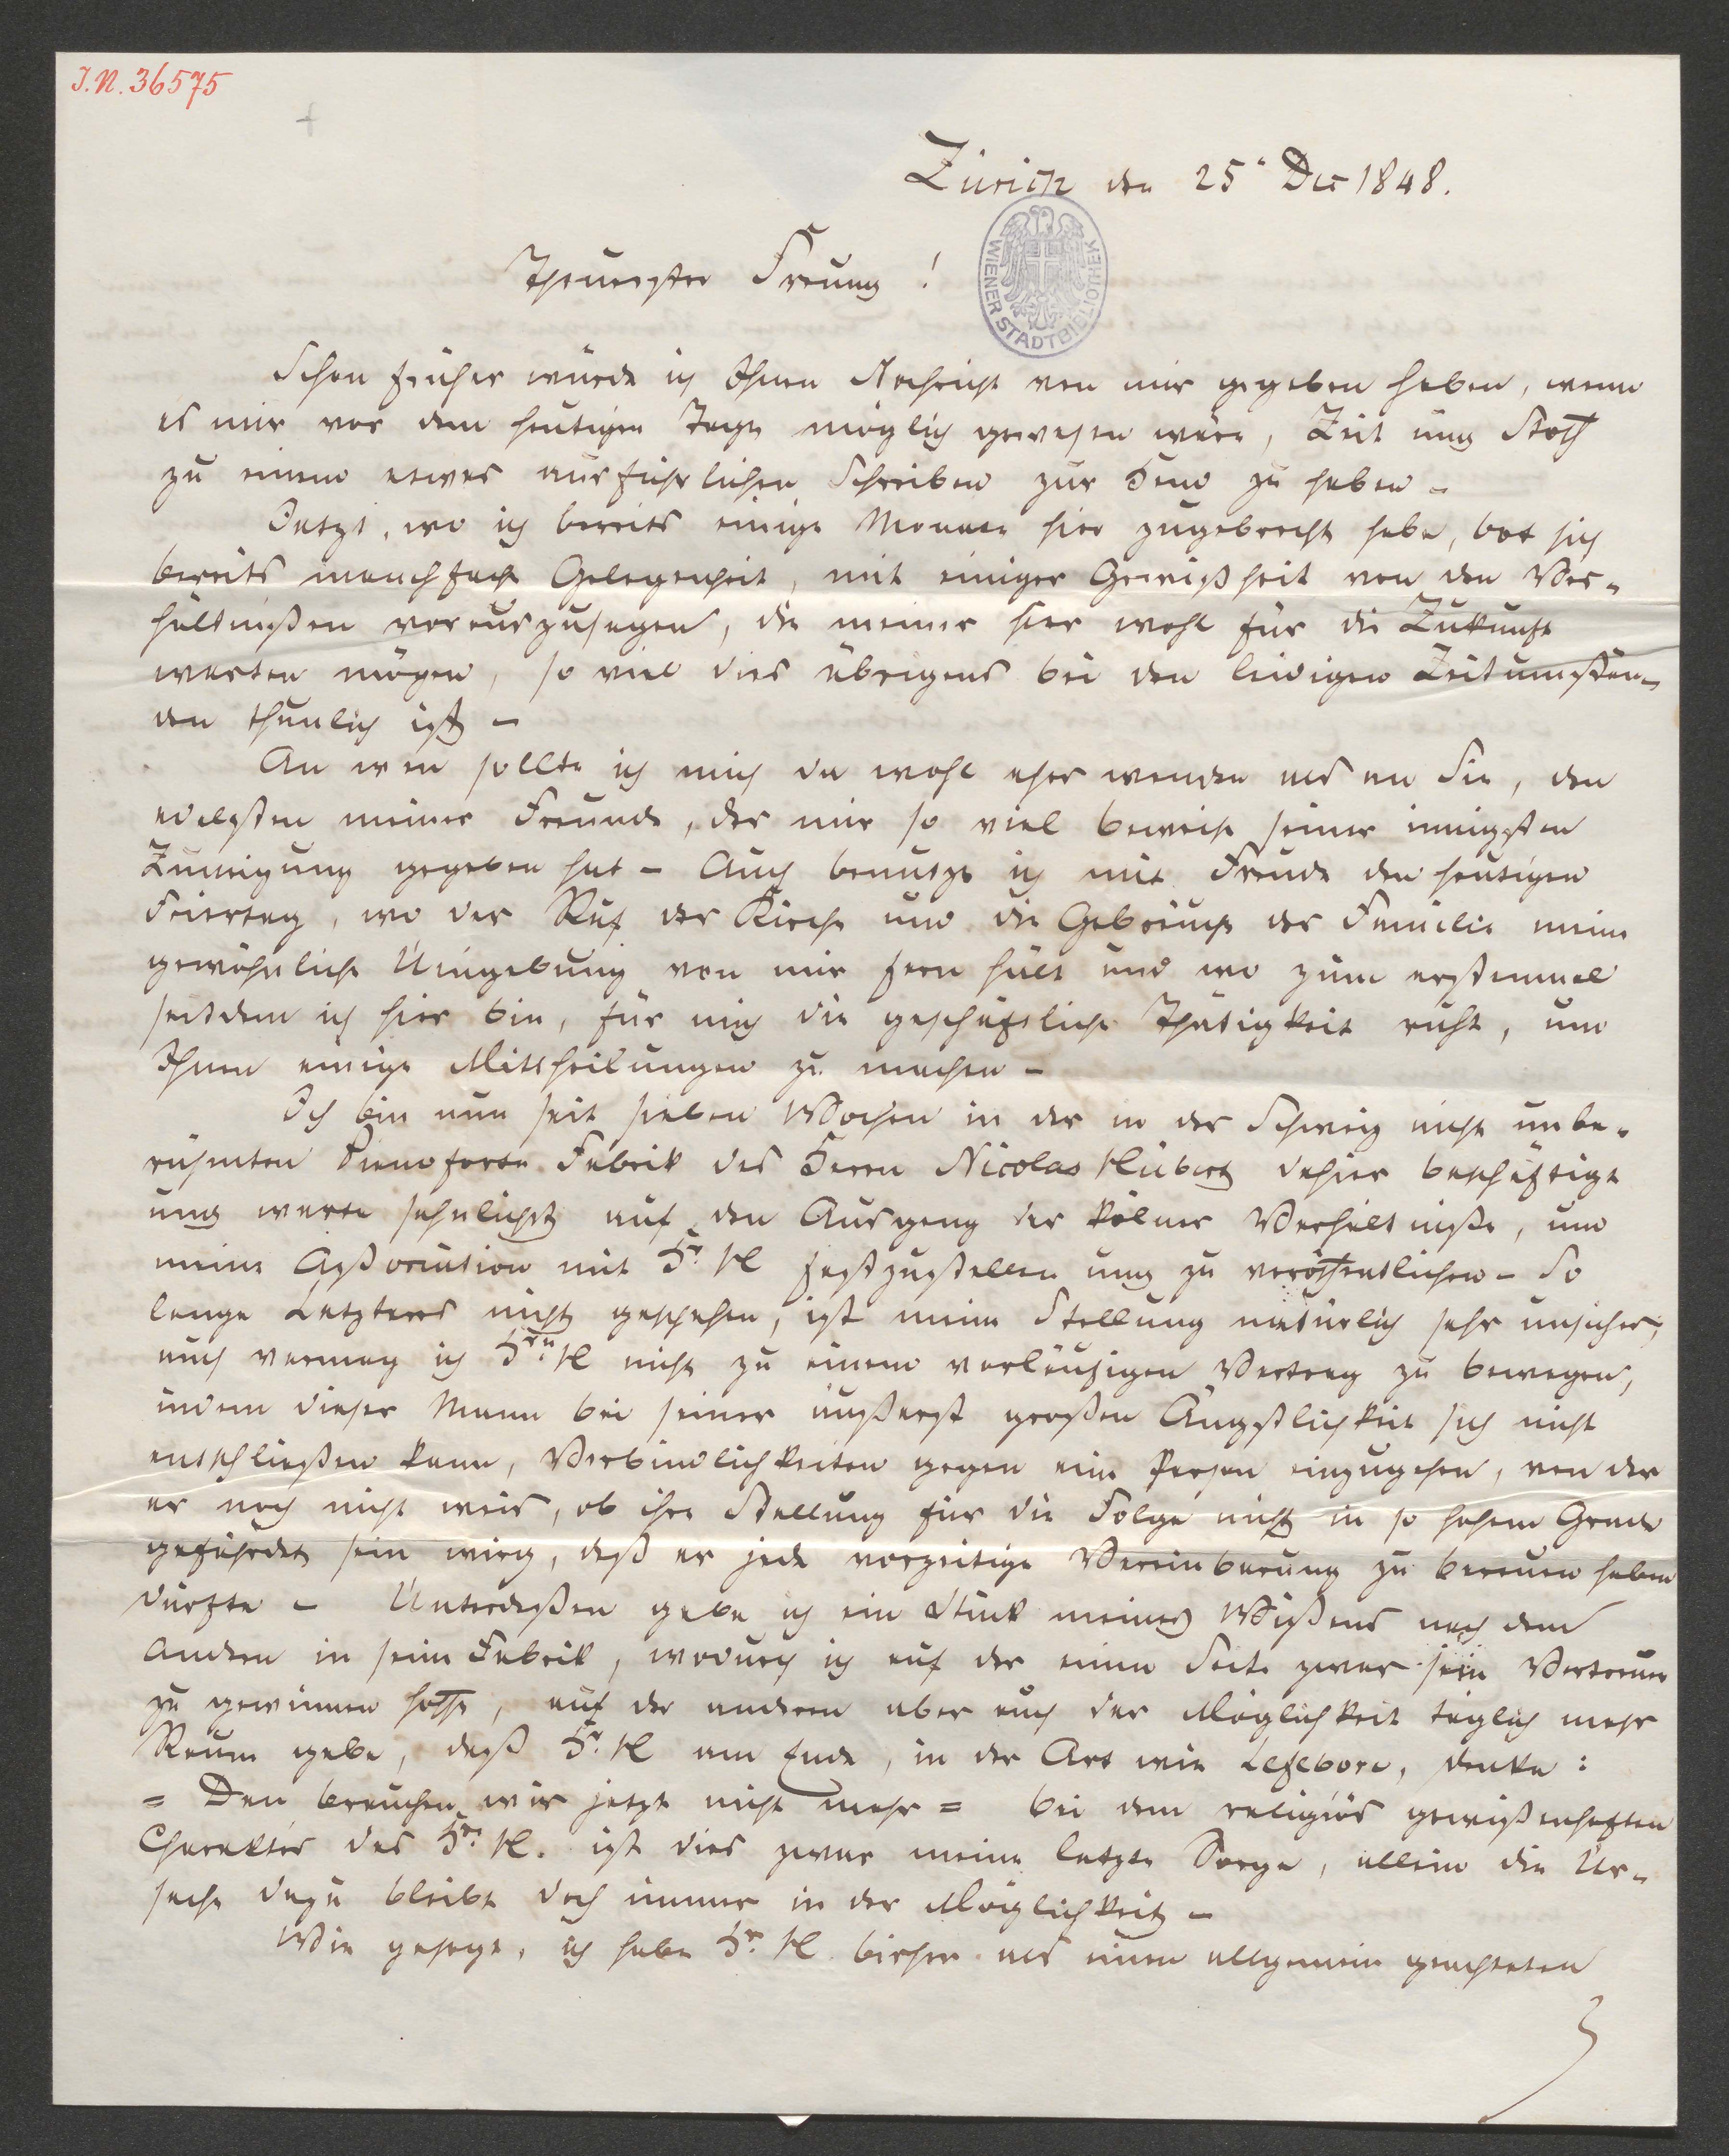 J.N. 36575
Zürich den 25t Dec 1848.
Theuerster Freund!
WIENER STADTBIBLIOTHEK
Schon früher würde ich Ihnen Nachricht von mir gegeben haben, wenn
es mir vor dem heutigen Tage möglich gewesen wäre, Zeit und Stoff
zu einem etwas ausführlichen Schreiben zur Hand zu haben –
Jetzt, wo ich bereits einige Monate hier zugebracht habe, bot sich
bereits manchfache Gelegenheit, mit einiger Gewißheit von den Ver-
hältnißen vorauszusagen, die meiner hier wohl für die Zukunft
warten mögen, so viel dies übrigens bei den leidigen Zeitumstän-
den thunlich ist –
An wen sollte ich mich da wohl eher wenden als an Sie, den
edelsten meiner Freunde, der mir so viel Beweise seiner innigsten
Zuneigung gegeben hat – Auch benutze ich mit Freude den heutigen
Feiertag, wo der Ruf der Kirche und die Gebräuche der Familie meine
gewöhnliche Umgebung von mir fern hält und wo zum erstenmal
seitdem ich hier bin, für mich die geschäftliche Thätigkeit ruht, um
Ihnen einige Mittheilungen zu machen –
Ich bin nun seit sieben Wochen in der in der Schweiz nicht unbe-
rühmten Pianoforte Fabrik des Herrn Nicolas Hübert dahier beschäftigt
und warte sehnlichst auf den Ausgang der kölner Verhältniße, um
meine Aßociation mit Hr. H festzustellen und zu veröffentlichen – So
lange Letzteres nicht geschehen, ist meine Stellung natürlich sehr unsicher,
auch vermag ich Hrn. H nicht zu einem vorläufigen Vertrag zu bewegen,
indem dieser Mann bei seiner äußerst großen Ängstlichkeit sich nicht
entschließen kann, Verbindlichkeiten gegen eine Person einzugehen, von der
er noch nicht weis, ob ihre Stellung für die Folge nicht in so hohem Grade
gefährdet sein wird, daß er jede vorzeitige Vereinbarung zu bereuen haben
dürfte – Unterdeßen gebe ich ein Stück meines Wißens nach dem
Andern in seine Fabrik, wodurch ich auf der einen Seite zwar sein Vertrauen
zu gewinnen hoffe, auf der anderen aber auch der Möglichkeit täglich mehr
Raum gebe, daß Hr. H am Ende, in der Art wie Lefebvre, denke:
= Den brauchen wir jetzt nicht mehr = bei dem religiös gewißenhaften
Charakter des Hrn. H. ist dies zwar meine letzte Sorge, allein die Ur-
sache dazu bleibt doch immer in der Möglichkeit –
Wie gesagt, ich habe Hr. H. bisher als einen allgemein geachteten